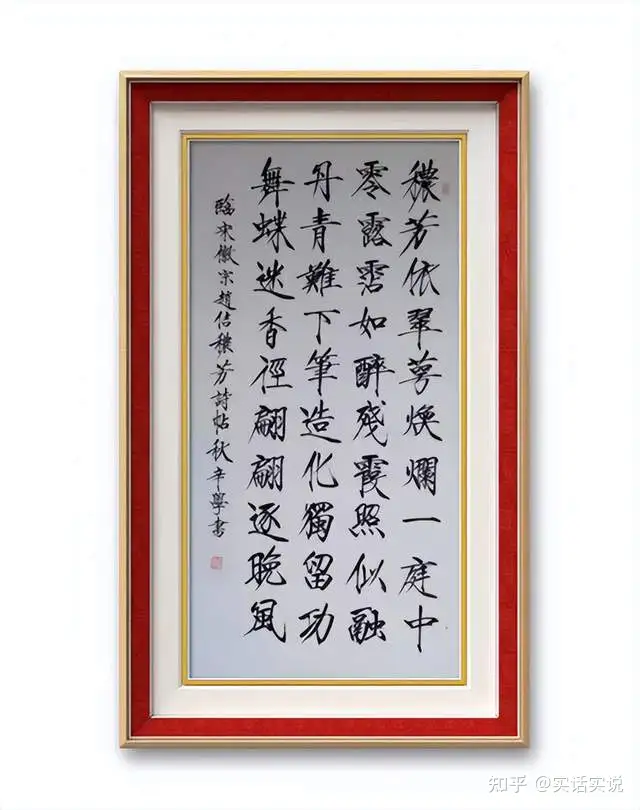 穠芳依翠萼煥爛一庭中
零露霑如醉殘霞照似融
丹青難下筆造化獨留功
舞蝶迷香徑翩翩逐晚風
臨宋徽宗趙佶穠芳詩帖秋辛學書
知乎 @实话实说